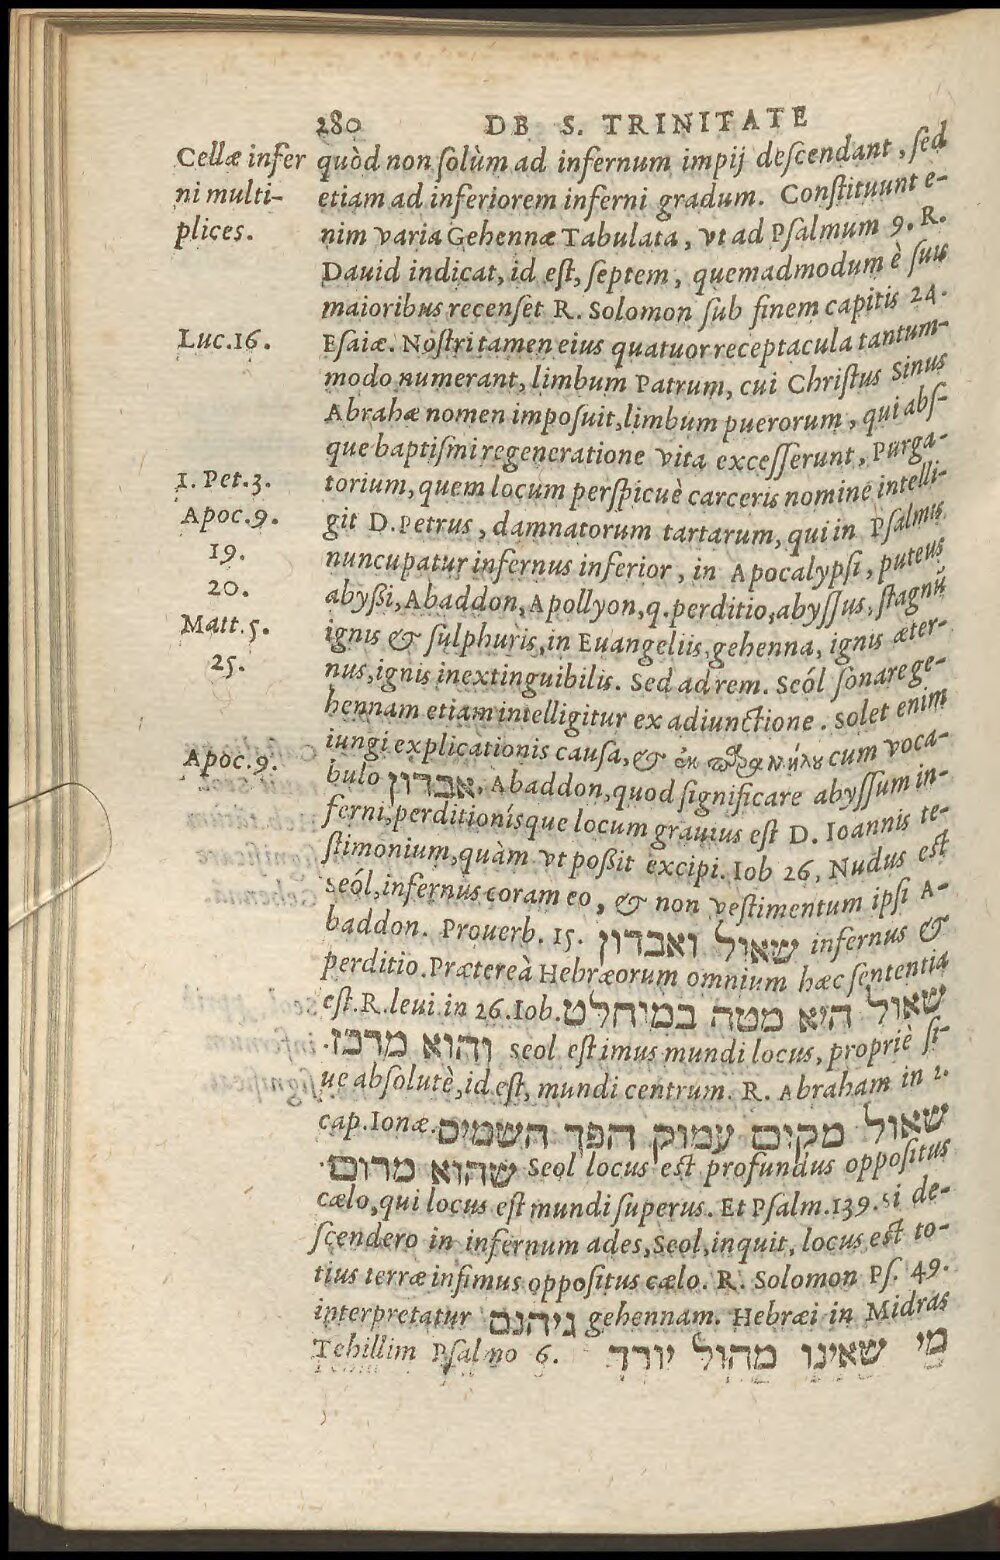 280 DE S. TRINITATE
Cellæ infer
ni multi-
plices.
quòd non ſolùm ad infernum impij deſcendant, ſed
etiam ad inferiorem inferni gradum. Conſtituunt e-
nim varia Gehennæ Tabulata, vt ad Pſalmum 9. R.
Dauid indicat, id eſt, ſeptem, quemadmodum è ſuis
maioribus recenſet R. Solomon ſub finem capitis 24.
Luc.16.
Eſaiæ. Noſtri tamen eius quatuor receptacula tantum-
modo numerant, limbum Patrum, cui Chriſtus Sinus
Abrahæ nomen impoſuit, limbum puerorum, qui abſ-
que baptiſmi regeneratione vita exceſſerunt, Purga-
1. Pet.3.
torium, quem locum perſpicuè carceris nomine intelli-
Apoc.9.
git D. Petrus, damnatorum tartarum, qui in Pſalmis
19.
nuncupatur infernus inferior, in Apocalypſi, puteus
20.
abyßi, Abaddon, Apollyon, q. perditio, abyſſus, ſtagnũ
Matt.5.
ignis & ſulphuris, in Euangeliis, gehenna, ignis æter-
25.
nus, ignis inextinguibilis. Sed ad rem. Seól ſonare ge-
hennam etiam intelligitur ex adiunctione. Solet enim
iungi explicationis cauſa, & ἐκ παραλλήλου cum voca-
Apoc.9.
bulo אבדון, Abaddon, quod ſignificare abyſſum in-
ferni, perditionísque locum grauius eſt D. Ioannis te-
ſtimonium, quàm vt poßit excipi. Iob 26, Nudus eſt
seól, infernus coram eo, & non veſtimentum ipſi A-
baddon. Prouerb. 15. שאול ואבדון infernus &
perditio. Prætereà Hebræorum omnium hæc ſententia
eſt. R. leui in 26. Iob. שאול היא מטה במוחלט
והוא מרכז. seol eſt imus mundi locus, propriè ſi-
ue abſolutè, id eſt, mundi centrum. R. Abraham in 2.
cap. Ionæ. שאול מקום עמוק הפך השמים
שהוא מרום. Seol locus eſt profundus oppoſitus
cælo, qui locus eſt mundi ſuperus. Et Pſalm.139. si de-
ſcendero in infernum ades, Seol, inquit, locus eſt to-
tius terræ infimus oppoſitus cælo. R. Solomon Pſ. 49.
interpretatur גיהנם gehennam. Hebræi in Midras
Tehillim Pſalmo 6. מי שאינו מהול יורד